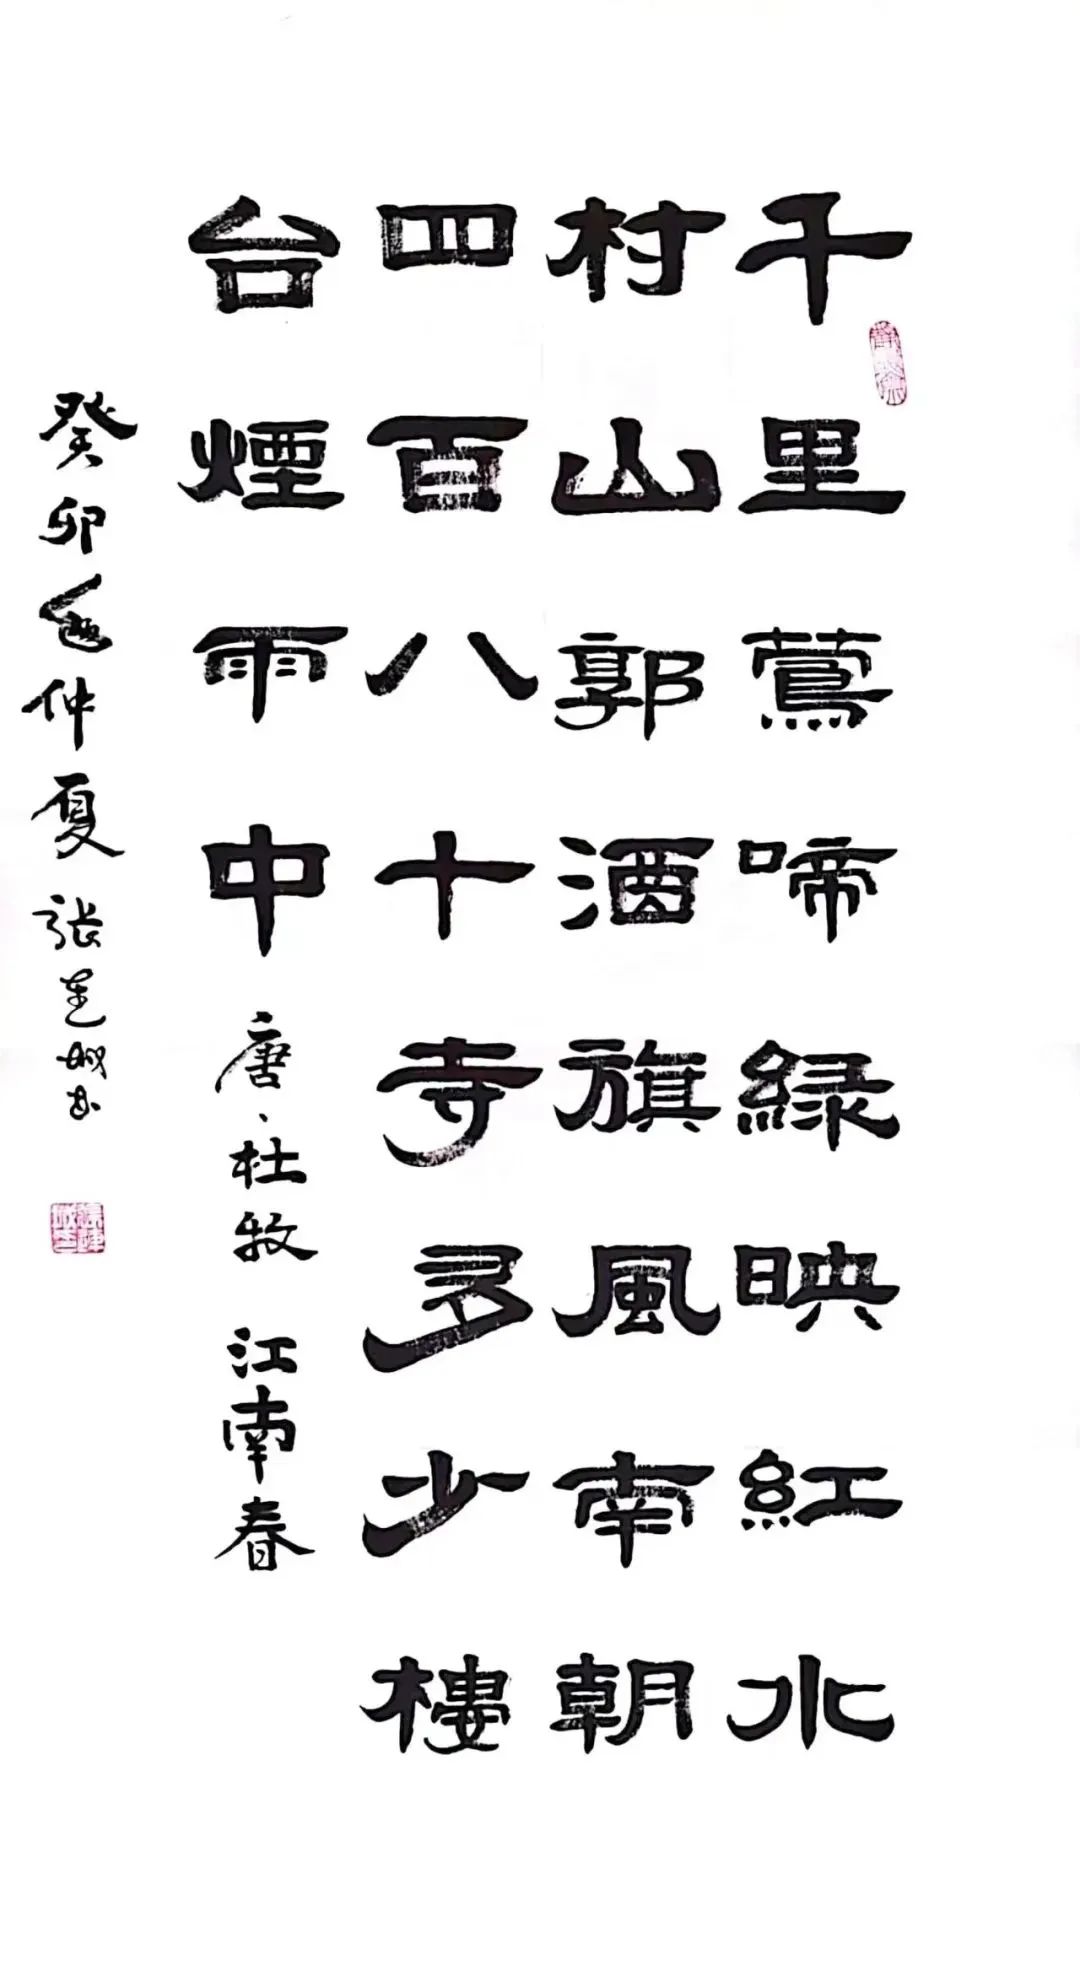 千里鶯啼綠映紅水
村山郭酒旗風南朝
四百八十寺多少樓
台煙雨中 唐、杜牧 江南春
癸卯仲夏張建城书